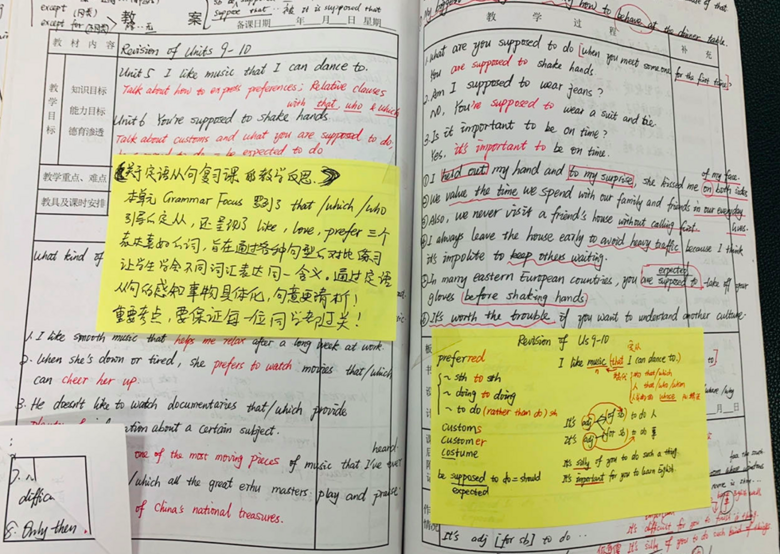 except
except for
教 案
suppose that
it is supposed that
备课日期 年 月 日 星期
教材内容
Revision of Units 9-10
教学目标
知识目标
能力目标
德育渗透
Unit 5 I like music that I can dance to.
Talk about how to express preferences; Relative clauses
with that, who & which
Unit 6 You're supposed to shake hands.
Talk about customs and what you are supposed to do,
be expected to do
教学重点、难点
教具及课时安排
《关于定语从句复习课的教学反思》
本单元 Grammar Focus 到了 that/which/who
引导定从,还呈现了 like, love, prefer 三个
表达喜好的词,旨在通过各种句型的对比练习
让学生学会不同词汇表达同一含义。通过定语
从句的感知事物具体化,句意更清晰!
重要考点,要保证每一位同学都过关!
What kind of
1. I like smooth music that helps me relax after a long week at work.
2. When she's down or tired, she prefers to watch movies that/which
can cheer her up.
3. He doesn't like to watch documentaries that/which provide
information about a certain subject.
one of the most moving pieces of music that I've ever
heard
/which all the great erhu masters play and praise
of China's national treasures.
Only then
how to behave at the dinner table.
教 学 过 程
补 充
1. What are you supposed to do [when you meet someone for the first time]?
You are supposed to shake hands.
2. Am I supposed to wear jeans?
No, You're supposed to wear a suit and tie.
3. Is it important to be on time?
Yes, it's important to be on time.
① I held out my hand and to my surprise, she kissed me on both sides
of my face.
② We value the time we spend with our family and friends in our everyday
lives.
③ Also, we never visit a friend's house without calling first.
④ I always leave the house early to avoid heavy traffic because I think
it's impolite to keep others waiting.
expected
⑤ In many eastern European countries, you are supposed to take off your
gloves before shaking hands.
⑥ It's worth the trouble if you want to understand another culture.
Revision of Us 9-10
preferred
I like music that I can dance to.
定从
~ sth to sth
~ doing to doing
~ to do (rather than do) sth
物 that/which
人 that/who/whom
whose
customs
customer
costume
It's adj (of sb) to do 人
It's adj (for sb) to do 事
It's silly of you to do such a thing.
be supposed to do = should
expected
It's important for you to learn English.
月 日
It's adj [for sb] to do ...
It's difficult for you to
It's silly of you to do such kind of things.